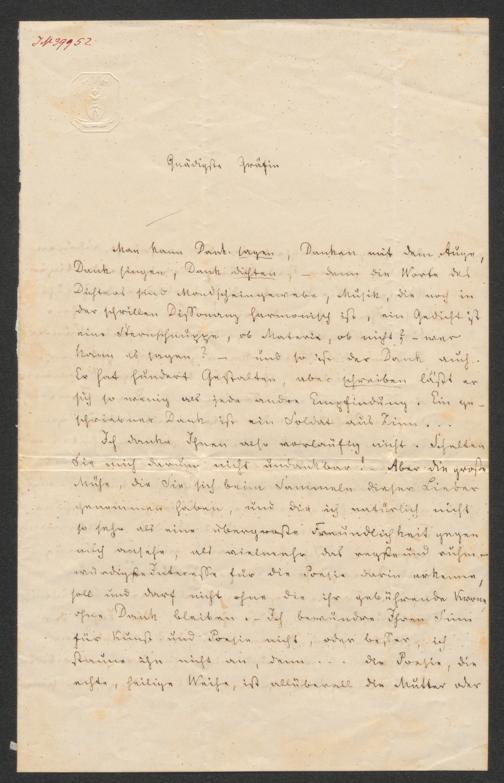 J.N 39952
Gnädigste Gräfin
Man kann Dank sagen, Danken mit dem Auge,
Dank singen, Dank dichten, – denn die Worte des
Dichters sind Mondscheingewebe, Musik, die noch in
der schrillen Dissonanz harmonisch ist, ein Gedicht ist
eine Sternschnuppe, ob Materie, ob nicht? – wer
kann es sagen? – und so ist der Dank auch.
Er hat hundert Gestalten, aber schreiben läßt er
sich so wenig als jede andre Empfindung. Ein ge-
schriebner Dank ist ein Soldat aus Zinn...
Ich danke Ihnen also vorläufig nicht. Schelten
Sie mich darum nicht undankbar! – Aber die große
Mühe, die Sie sich beim Sammeln dieser Lieder
genommen haben, und die ich natürlich nicht
so sehr als eine übergroße Freundlichkeit gegen
mich ansehe, als vielmehr das regste und rühm-
würdigste Interesse für die Poesie darin erkenne,
soll und darf nicht ohne die ihr gebührende Krone,
ohne Dank bleiben. – Ich bewundre Ihren Sinn
für Kunst und Poesie nicht, oder besser, ich
staune ihn nicht an, denn... die Poesie, die
echte, heilige Weihe, ist allüberall die Mutter oder